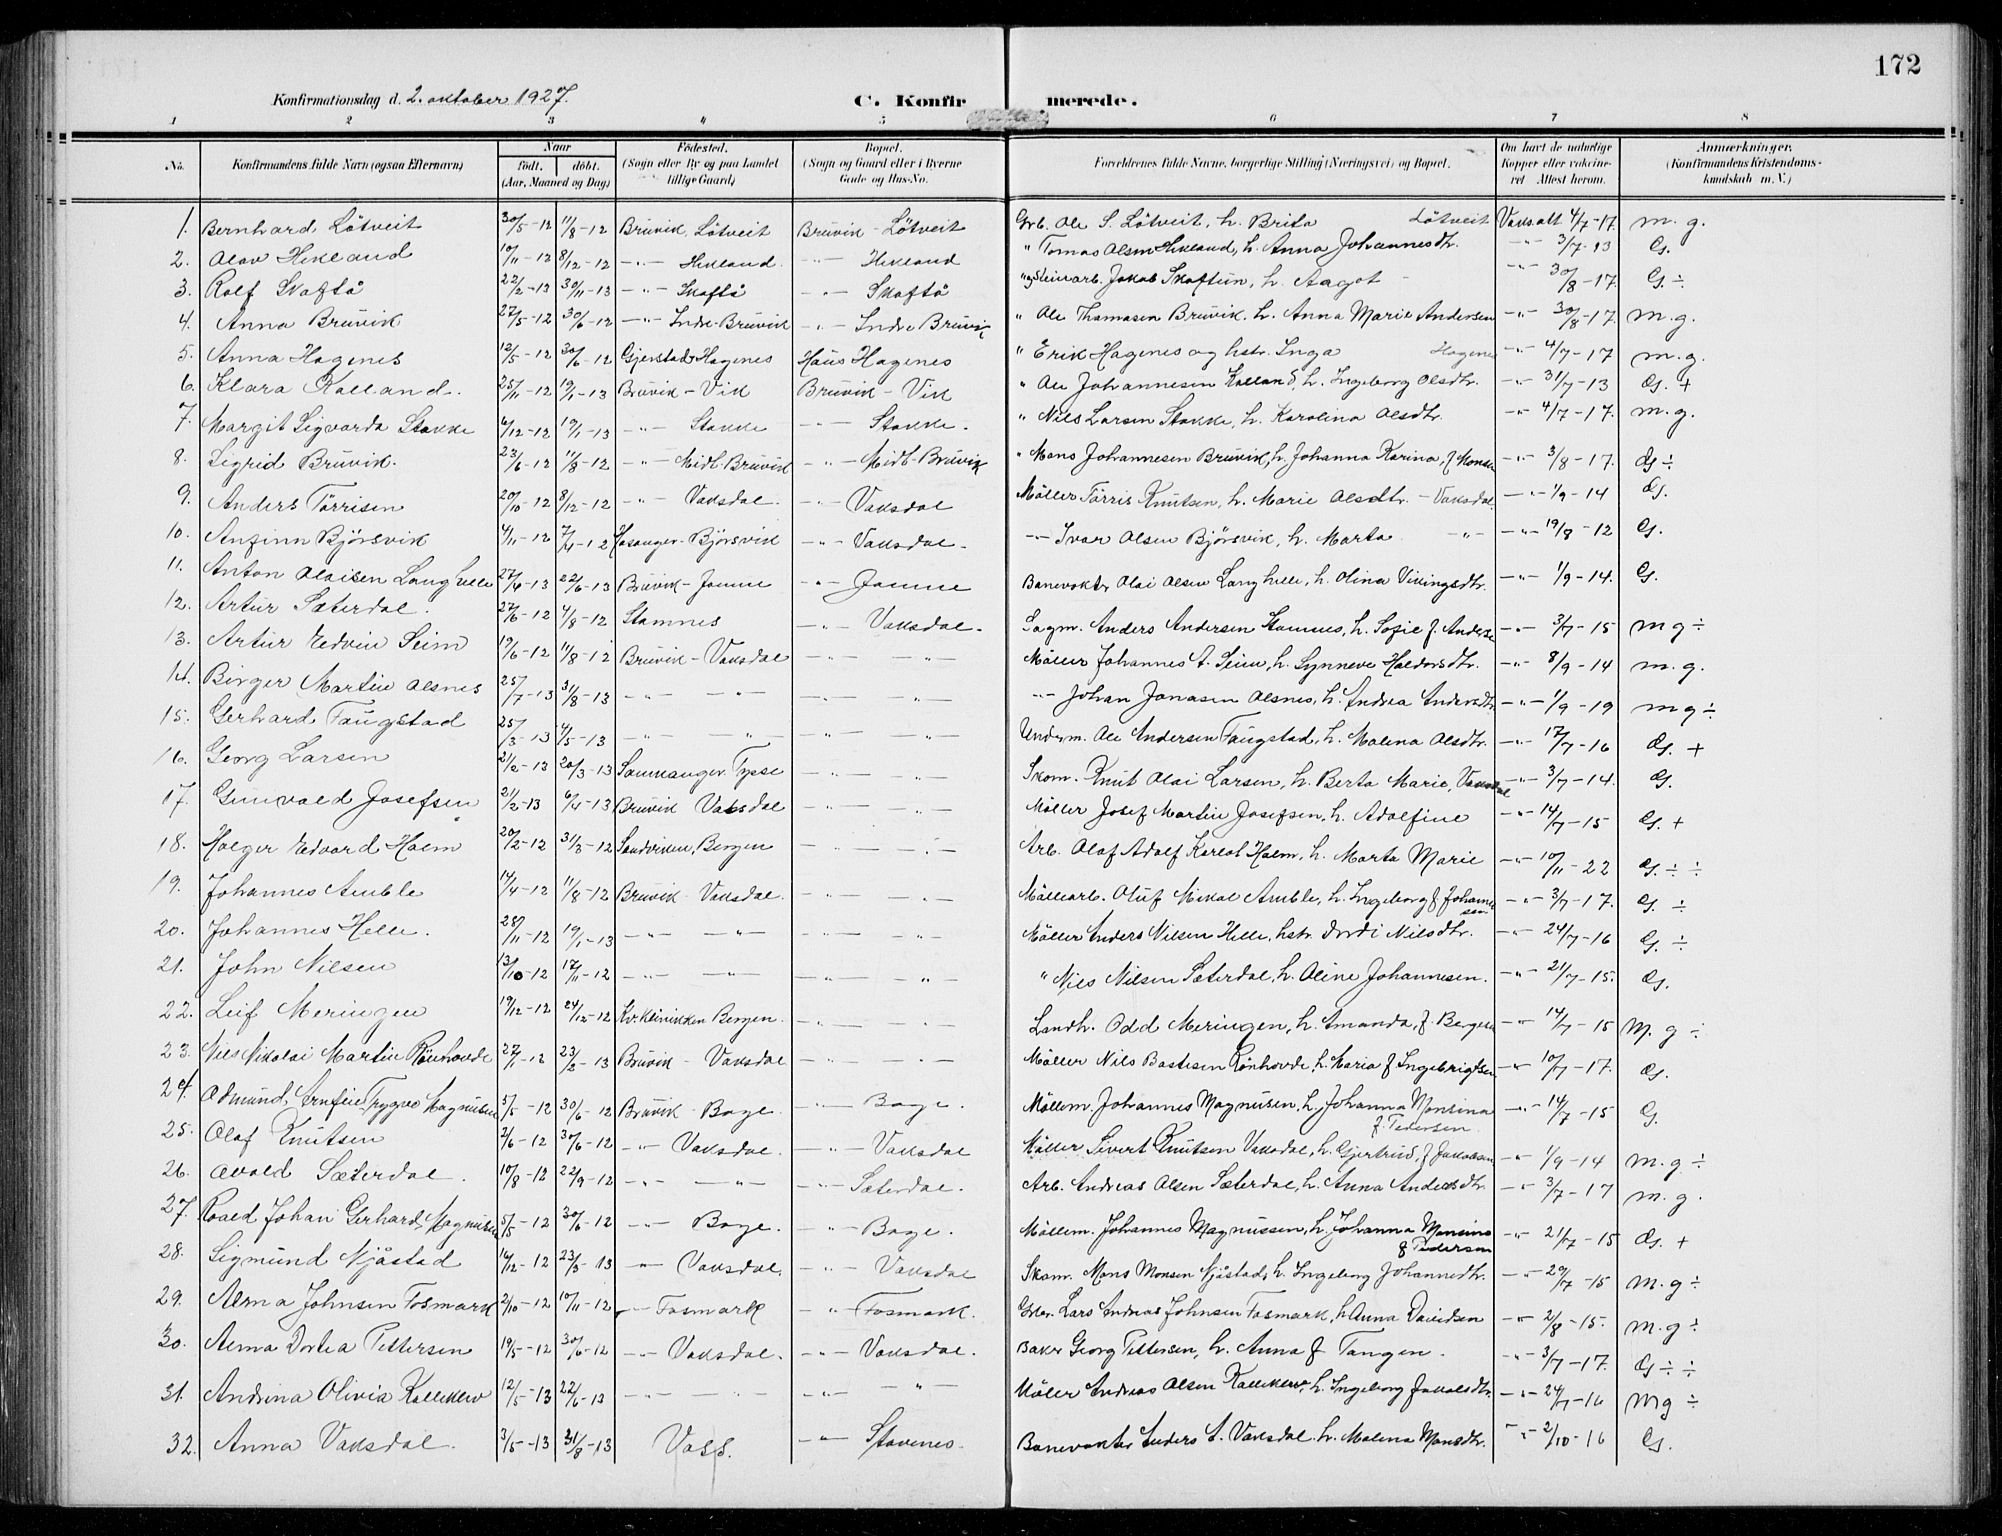 172
Konfirmationsdag d. 2. oktober 1927. C. Konfir merede.
1 2 3 4 5 6 7 8
No. Konfirmandens fulde Navn (ogsaa Efternavn) Naar født. døbt. (Aar, Maaned og Dag) Födested. (Sogn eller By og paa Landet tillige Gaard) Bopæl. (Sogn og Gaard eller i Byerne Gade og Hus-No. Forældrenes fulde Navne, borgerlige Stilling (Næringsvei) og Bopæl. Om havt de naturlige Kopper eller vakcineret. Attest herom. Anmærkninger. (Konfirmandens Kristendomskundskab m. V.)
1. Bernhard Lötveit 30/5-12 11/8-12 Bruvik, Lötveit Bruvik - Lötveit Grb. Ole S. Lötveit, h. Brita Lötveit Vaks.att 4/7-17. m. g.
2. Olav Hekland 10/11-12 8/12-12 -"- Hekland. -"- Hekland " Tomas Olsen Hekland, h. Anna Johannesdtr. -"- 3/7-13 G.
3. Rolf Skaftå 22/2-13 30/11-13 -"- Skaftå -"- Skaftå "og Steinarb. Jakob Skaftun, h. Aagot - -"- 30/8-17. G. ÷
4. Anna Bruvik 27/5-12 30/6-12 -"- Indre-Bruvik -"- Indre Bruvik " Ole Thomasen Bruvik. h. Anna Marie Andersen -"- 30/8-17. m. g.
5. Anna Hagenes 12/5-12 30/6-12 Gjerstad Hagenes Haus Hagenes " Erik Hagenes og hstr. Inga Hagenes -"- 4/7-17 m. g.
6. Klara Kalland. 25/11-12 19/1-13 Bruvik - Vik Bruvik - Vik " Ole Johannesen Kalland, h. Ingeborg Olsdtr. -"- 31/7-13 G. +
7. Margit Sigvarda Stakke 6/12-12 19/1-13 -"- Stakke -"- Stakke. " Nils Larsen Stakke, h. Karolina Olsdtr. -"- 4/7-17. m. g.
8. Sigrid Bruvik. 23/6-12 11/8-12 -"- Midt-Bruvik -"- Midt-Bruvik " Mons Johannesen Bruvik, h. Johanna Karina, f Monsen -"- 3/8-17. G ÷
9. Anders Törrisen 20/10-12 8/12-12 -"- Vaksdal. -"- Vaksdal Möller Törris Knutsen, h. Marie Olsdtr. - Vaksdal -"- 1/9-14 G.
10. Anfinn Björsvik 4/11-12 7/4-12 Hosanger-Björsvik -"- Vaksdal. -"- Ivar Olsen Björsvik, h. Marta -"- -"- 19/8-12 G.
11. Anton Olaisen Langhelle 27/4-13 22/6-13 Bruvik - Jamne -"- Jamne Banevokter Olai Olsen Langhelle, h. Olina Vikingsdtr. -"- 1/9-14. G.
12. Artur Sæterdal. 27/6-12 4/8-12 Stamnes -"- Vaksdal. Sagm. Anders Andersen Stamnes, h. Sofie f. Anderse -"- 3/7-15 m g ÷
13. Artur Edvin Seim 19/6-12 11/8-12 Bruvik - Vaksdal -"- -"- Möller Johannes A. Seim, h. Synneve Haldorsdtr. -"- 8/9-14 m. g.
14. Birger Martin Olsnes 25/7-13 31/8-13 -"- -"- -"- -"- -"- Johan Jonasen Olsnes, h. Andrea Andersdtr. -"- 1/9-19 m g ÷
15. Gerhard Faugstad 25/3-13 4/5-13 -"- -"- -"- -"- Underm. Ole Andersen Faugstad, h. Malena Olsdtr. -"- 17/7-16 G. +
16. Georg Larsen 21/2-13 20/3-13 Samnanger. Tysse -"- -"- Skom. Knut Olai Larsen, h. Berta Marie, Vaksdal -"- 3/7-14. G.
17. Gunvald Josefsen 21/2-13 6/4-13 Bruvik Vaksdal -"- -"- Möller Josef Martin Josefsen, h. Adolfine -"- 14/7-15 G. +
18. Holger Edvard Holm 20/2-12 31/3-12 Sandviken, Bergen -"- -"- Arb. Olaf Adolf Karlot Holm, h. Marta Marie -"- 10/11-22 G. ÷ ÷
19. Johannes Amble 14/4-12 11/8-12 Bruvik Vaksdal. -"- -"- Möllearb. Oluf Mikal Amble, h. Ingeborg f Johannessen -"- 3/7-17. G. ÷
20. Johannes Helle. 28/11-12 19/1-13 -"- -"- -"- -"- Möller Anders Nilsen Helle, hstr. Dordi Nilsdtr. -"- 24/7-16 G. ÷
21. John Nilsen 13/10-12 17/11-12 -"- -"- -"- -"- " Nils Nilsen Sæterdal, h. Oline Johannesen. -"- 21/7-15. G.
22. Leif Meringen 19/12-12 24/12-12 Kv.klinikken Bergen. -"- -"- Landh. Odd Meringen, h. Amanda, f. Bergesen -"- 14/7-15 M. g ÷
23. Nils Nikolai Martin Rönhovde 27/1-12 23/2-13 Bruvik - Vaksdal -"- -"- Möller Nils Bastesen Rönhovde, h. Maria f Ingebrigtsen -"- 10/7-17. G.
24. Odmund Arnfein Trygve Magnusen 5/5-12 30/6-12 Bruvik - Boge. -"- Boge. Möllem. Johannes Magnusen, h. Johanna Monsina f. Pedersen -"- 14/7-15 G.
25. Olaf Knutsen 2/6-12 30/6-12 -"- Vaksdal. -"- Vaksdal Möller Sivert Knutsen Vaksdal, h. Gjertrud, f Jakobsen -"- 1/9-14 m. g ÷
26. Ovald Sæterdal. 10/8-12 22/9-12 -"- -"- -"- Sæterdal. Arb. Andreas Olsen Sæterdal, h. Anna Andersdtr. -"- 3/7-17 m. g.
27. Roald Johan Gerhard Magnusen 5/5-12 30/6-12 -"- Boge. -"- Boge. Möllem. Johannes Magnussen, h. Johanna Monsina f Pedersen -"- 21/7-15 G. +
28. Sigmund Njåstad 14/12-12 23/3-13 -"- Vaksdal. -"- Vaksdal Skom. Mons Monsen Njåstad, h. Ingeborg Johannedtr. -"- 29/7-15 m. g ÷
29. Alma Johnsen Fosmark 2/10-12 10/11-12 -"- Fosmark -"- Fosmark. Lars Andreas Johnsen Fosmark, h Anna Davidsen -"- 2/8-15. m. g ÷
30. Alma Dortea Pettersen 19/5-12 30/6-12 -"- Vaksdal. -"- Vaksdal. Baker Georg Pettersen, h. Anna f Tangen. -"- 3/7-17. G ÷ ÷
31. Andrina Olivia Kalleklev 12/5-13 22/6-13 -"- -"- -"- -"- Möller Andreas Olsen Kallekleiv, h. Ingeborg Jakobsdtr. -"- 24/7-16 Mg ÷
32. Anna Vaksdal. 3/5-13 31/8-13 Voss. -"- Stavenes. Banevokter Anders A. Vaksdal. h. Malena Monsdtr. -"- 2/10-16 G.